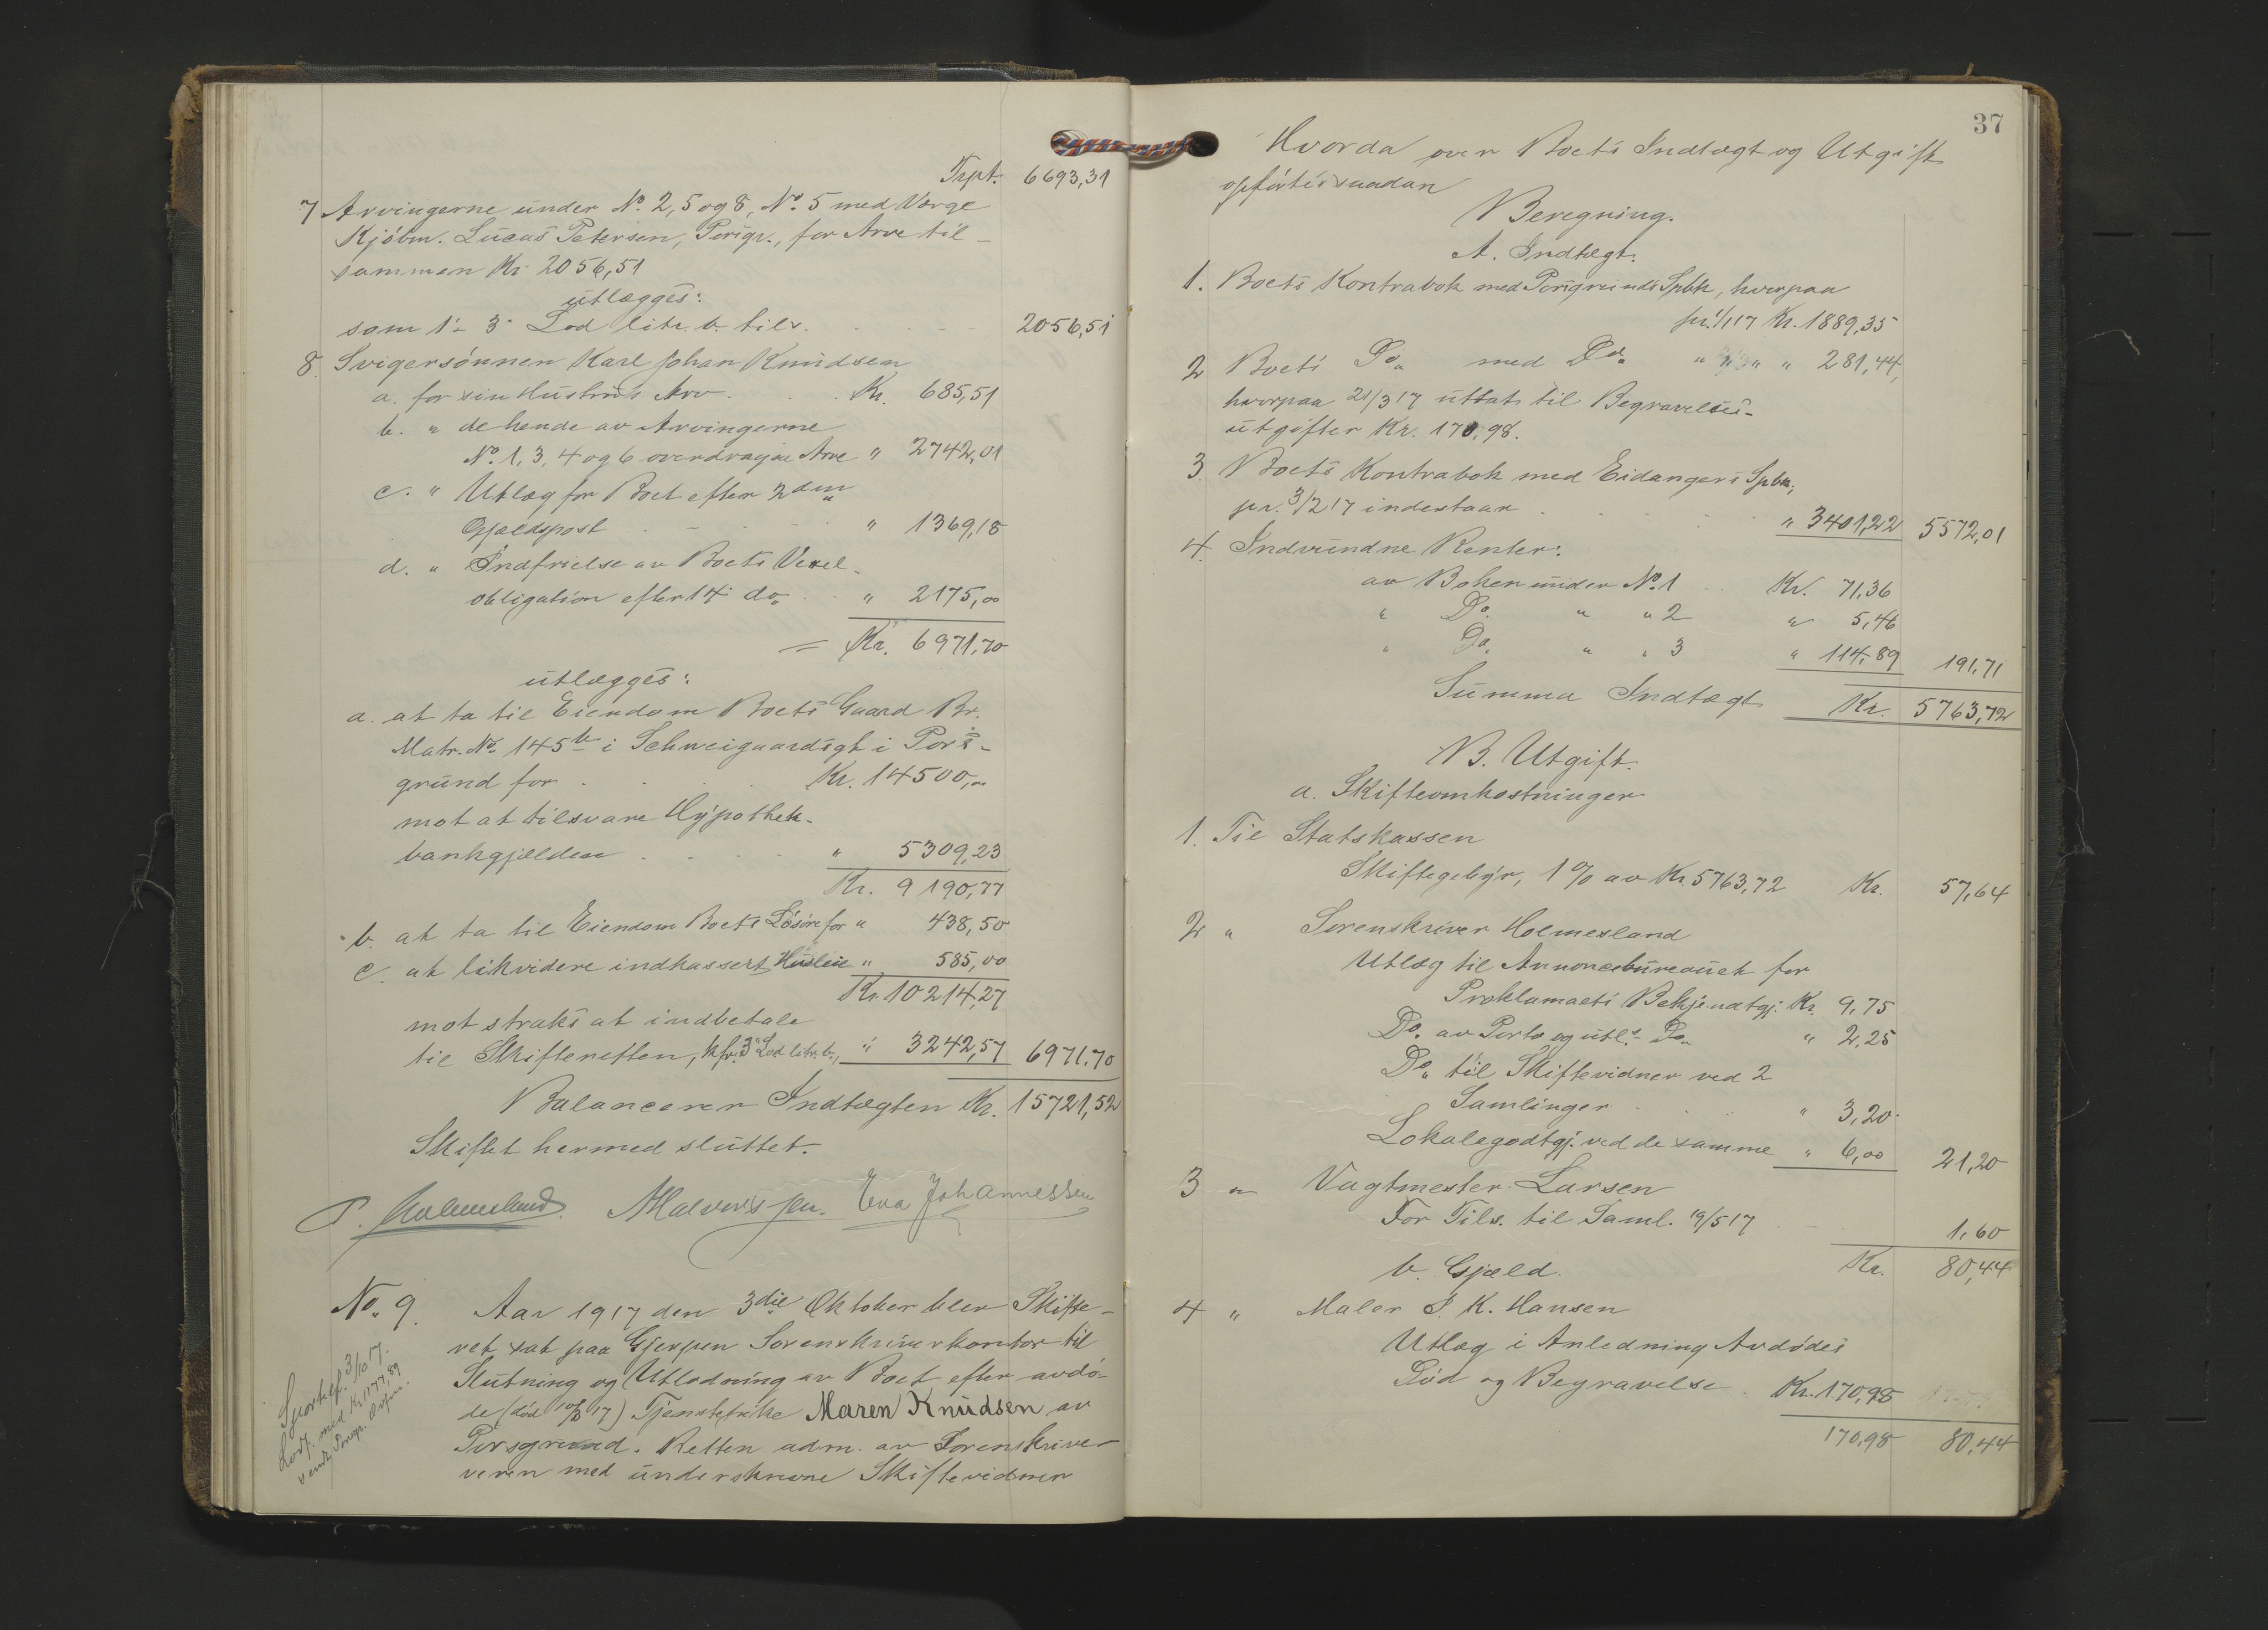 Trpt. 6693,31
7 Arvingerne under No. 2, 5 og 8, No. 5 med Værge
Kjöbm. Lucas Petersen, Porsgr., for Arve til-
sammen Kr 2056,51
utlægges:
som 1ste 3. Lod litr. b. tils. 2056,51
8. Svigersönnen Karl Johan Knudsen
a. for sin Hustrus Arv Kr. 685,51
b. " de hende av Arvingerne
No. 1, 3, 4 og 6 overdragne Arve " 2742,01
c. " Utlæg for Boet efter 2den
Gjældspost " 1369,18
d. " Indfrielse av Boets Vexel-
obligation efter 14 do. " 2175,00
= Kr. 6971,70
utlægges:
a. at ta til Eiendom Boets Gaard Br.
Matr. No. 145b i Schweigaardsgt i Pors-
grund for Kr. 14500,00
mot at tilsvare Hypothek-
bankgjælden " 5309,23
Kr. 9190,77
b. at ta til Eiendom Boets Lösöre for " 438,50
c. at likvidere indkassert Husleie " 585,00
Kr. 10214,27
mot straks at indbetale
til Skifteretten, kfr. 3. Lod litr. b., " 3242,57 6971,70
Balancerer Indtægten Kr. 15721,52
Skiftet hermed sluttet.
P. Holmesland. A Halvorsen. Eva Johannessen
No. 9. Aar 1917 den 3die Oktober blev Skifte-
ret sat paa Gjerpen Sorenskriverkontor til
Slutning og Utlodning av Boet efter avdö-
de (död 10/3 17) Tjenestepike Maren Knudsen av
Porsgrund. Retten adm. av Sorenskrive-
veren med underskrevne Skiftevidner
3/10 17.
med Kr. 1177,89
37
Hvorda over Boets Indtægt og Utgift
opförtes saadan
Beregning.
A. Indtægt.
1. Boets Kontrabok med Porsgrunds Spbk, hvorpaa
pr. 1/1 17 Kr. 1889,35
2 Boets Do. med Do. " " " " 281,44,
hvorpaa 21/3 17 uttat til Begravelses-
utgifter Kr. 170,98.
3. Boets Kontrabok med Eidangers Spbk,
pr. 3/2 17 indestaar " 3401,22 5572,01
4. Indvundne Renter:
av Boken under No. 1 Kr. 71,36
" Do. " " 2 " 5,46
" Do. " " 3 " 114,89 191,71
Summa Indtægt Kr. 5763,72
B. Utgift.
a. Skifteomkostninger
1. Til Statskassen
Skiftegebyr, 1 % av Kr. 5763,72 Kr. 57,64
2 " Sorenskriver Holmesland
Utlæg til Annoncebureauet for
Proklamaets Bekjendtgj. Kr. 9,75
Do. av Porto og utl. Do. " 2,25
Do. til Skiftevidner ved 2
Samlinger " 3,20
Lokalegodtgj. ved de samme " 6,00 21,20
3 " Vagtmester Larsen
For Tils. til Saml. 19/5 17 1,60
b. Gjæld. Kr. 80,44
4 " Maler P. K. Hansen
Utlæg i Anledning Avdödes
Död og Begravelse Kr. 170,98
170,98 80,44